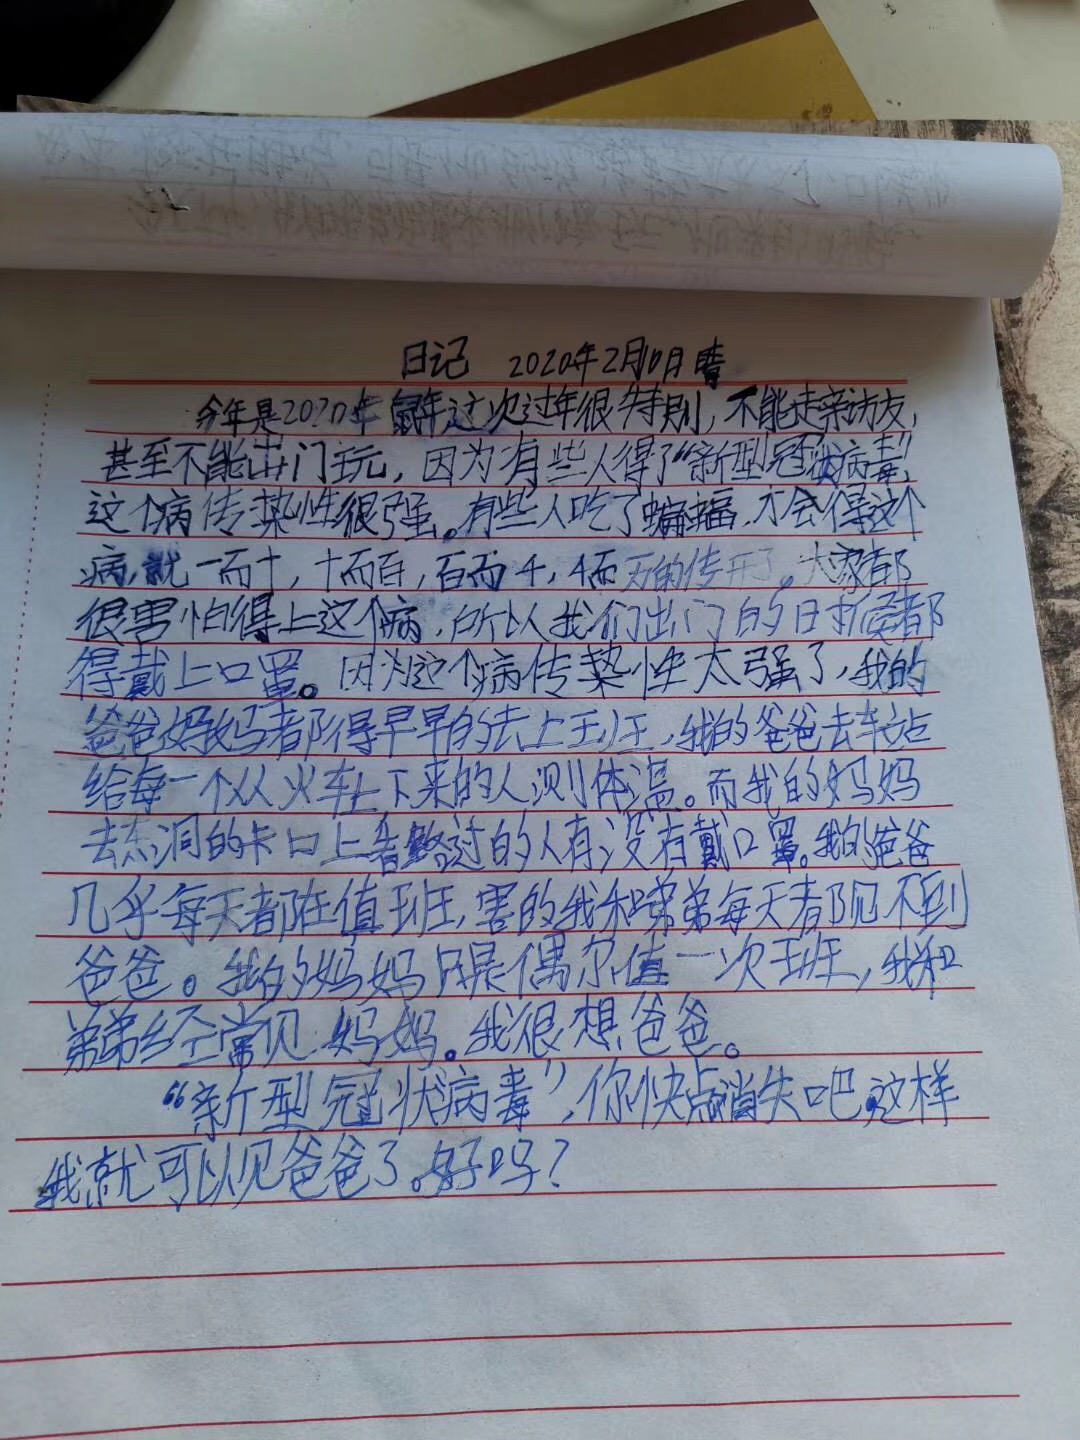 日记 2020年2月10日 晴
今年是2020年鼠年这次过年很特别，不能走亲访友，
甚至不能出门玩，因为有些人得了“新型冠状病毒”，
这个病传染性很强。有些人吃了蝙蝠，才会得这个
病，就一而十，十而百，百而千，千而万的传开了。大家都
很害怕得上这个病，所以我们出门的时候都
得戴上口罩。因为这个病传染性太强了，我的
爸爸妈妈都得早早的去上班，我的爸爸去车站
给每一个从火车上下来的人测体温。而我的妈妈
去洞的卡口上看路过的人有没有戴口罩。我的爸爸
几乎每天都在值班，害的我和弟弟每天都见不到
爸爸。我的妈妈只是偶尔值一次班，我和
弟弟经常见妈妈。我很想爸爸。
“新型冠状病毒”，你快点消失吧，这样
我就可以见爸爸了。好吗？